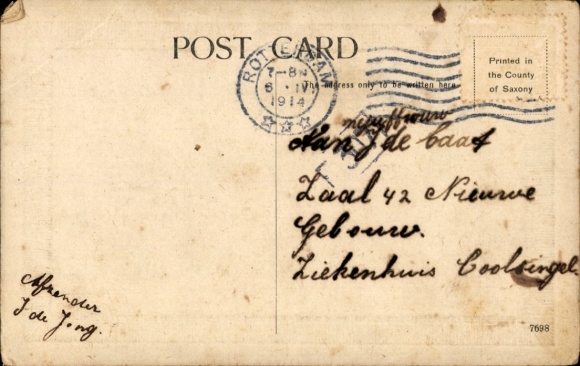 POST CARD
ROTTERDAM
7-8 N
6 . IV
1914
The address only to be written here
Printed in
the County
of Saxony
mejuffrouw
Aan J de Caat
Zaal 42 Nieuwe
Gebouw.
Ziekenhuis Coolsingel.
Afzender
J de Jong.
7698